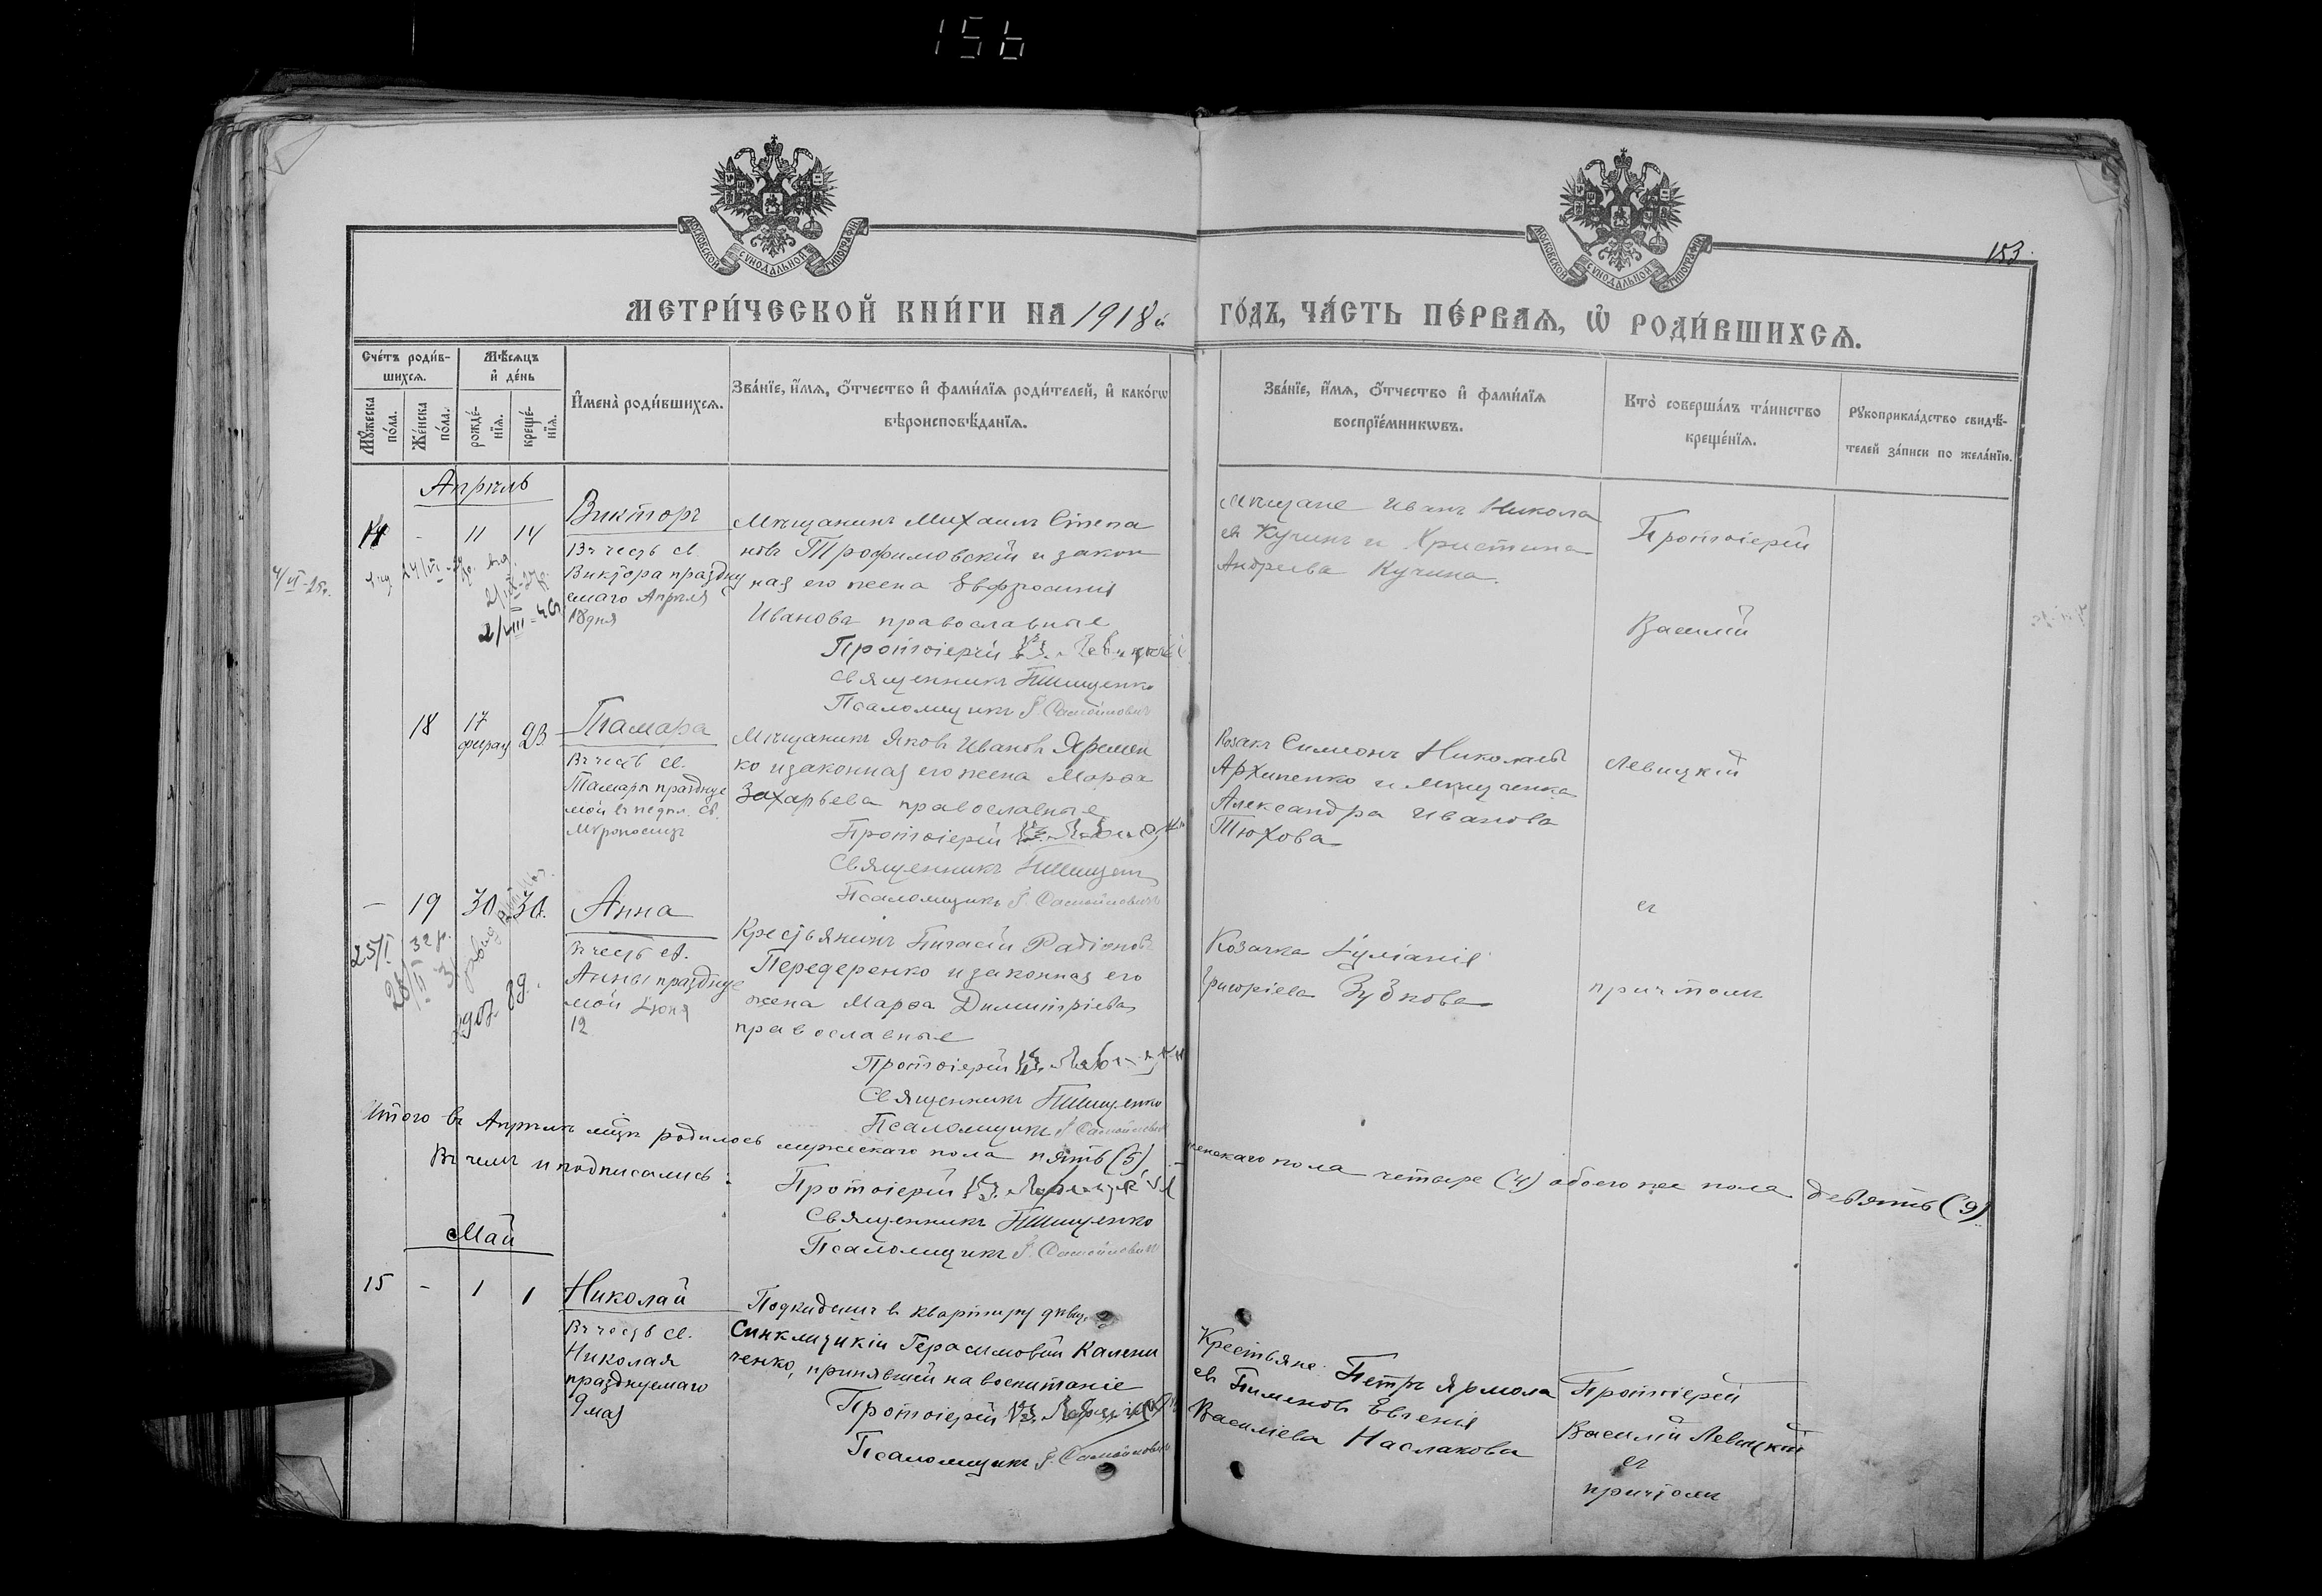 156
153.
МОСКОВСКОЙ СУНОДАЛЬНОЙ ТИПОГРАФІИ
МОСКОВСКОЙ СУНОДАЛЬНОЙ ТИПОГРАФІИ
МЕТРИ́ЧЕСКОЙ КНИ́ГИ НА 1918й ГО́ДЪ, ЧА́СТЬ ПЕ́РВАѦ, Ѡ РОДИ́ВШИХСѦ.
Сче́тъ роди́в-
шихсѧ.
Мѣ́сѧцъ
и҆ де́нь
Мꙋ́жеска
по́ла.
Же́нска
по́ла.
рожде́-
нїѧ.
креще́-
нїѧ.
И҆мена̀ роди́вшихсѧ.
Зва́нїе, и҆́мѧ, ѻ҆́тчество и҆ фами́лїѧ роди́телей, и҆ како́гѡ
вѣроисповѣ́данїѧ.
Зва́нїе, и҆́мѧ, ѻ҆́тчество и҆ фами́лїѧ
воспрїе́мникѡвъ.
Кто̀ соверша́лъ та́инство
креще́нїѧ.
Рꙋкоприкла́дство свидѣ́-
телей за́писи по жела́нїю.
Апрѣль
14 - 11 14
Викторъ
Въ честь св.
Виктора праздну
емаго Апрѣля
18 дня
Мѣщанинъ Михаилъ Степа
новъ Трофимовскій и закон
ная его жена Евфросинія
Иванова православные
Протоіерей В. Левицкій
Священникъ
Псаломщикъ Самойловичъ
Мѣщане Иванъ Никола
евъ Кучинъ и Христина
Андреева Кучина.
Протоіерей
Василій
4/VI-25г.
18 17 23
Тамара
Въ честь св.
Тамары праздну
мой въ недѣл. св.
Мѵроносицъ
Мѣщанинъ Яковъ Ивановъ Яремен
ко и законная его жена Марѳа
Захарьева православные
Протоіерей В. Левицкій
Священникъ
Псаломщикъ Самойловичъ
Козакъ Симеонъ Николаевъ
Архипенко и мѣщанка
Александра Иванова
Тюхова
Левицкій
- 19 30 30.
Анна
Въ честь св.
Анны праздну
мой Іюня
12
Крестьянинъ Радіоновъ
Передеренко и законная его
жена Марѳа Димитріева
православные
Протоіерей В. Левицкій
Священникъ
Псаломщикъ Самойловичъ
Козачка Іуліанія
Григоріева Зубкова
съ
причтомъ
Итого въ Апрѣлѣ мцѣ родилось мужескаго пола пять (5), женскаго пола четыре (4) обоего же пола девять (9)
Въ чемъ и подписались:
Протоіерей В. Левицкій
Священникъ
Псаломщикъ Самойловичъ
Май
15 - 1 1
Николай
Въ честь св.
Николая
празднуемаго
9 мая
Подкидышъ в квартиру дѣвиц.
Синклиникіи Герасимовой Калени
ченко, принявшей на воспитаніе
Протоіерей В. Левицкій
Псаломщикъ Самойловичъ
Крестьяне: Петръ Ярмола
евъ Пименовъ Евгенія
Василіева Наслакова
Протоіерей
Василій Левицкій
съ
причтомъ